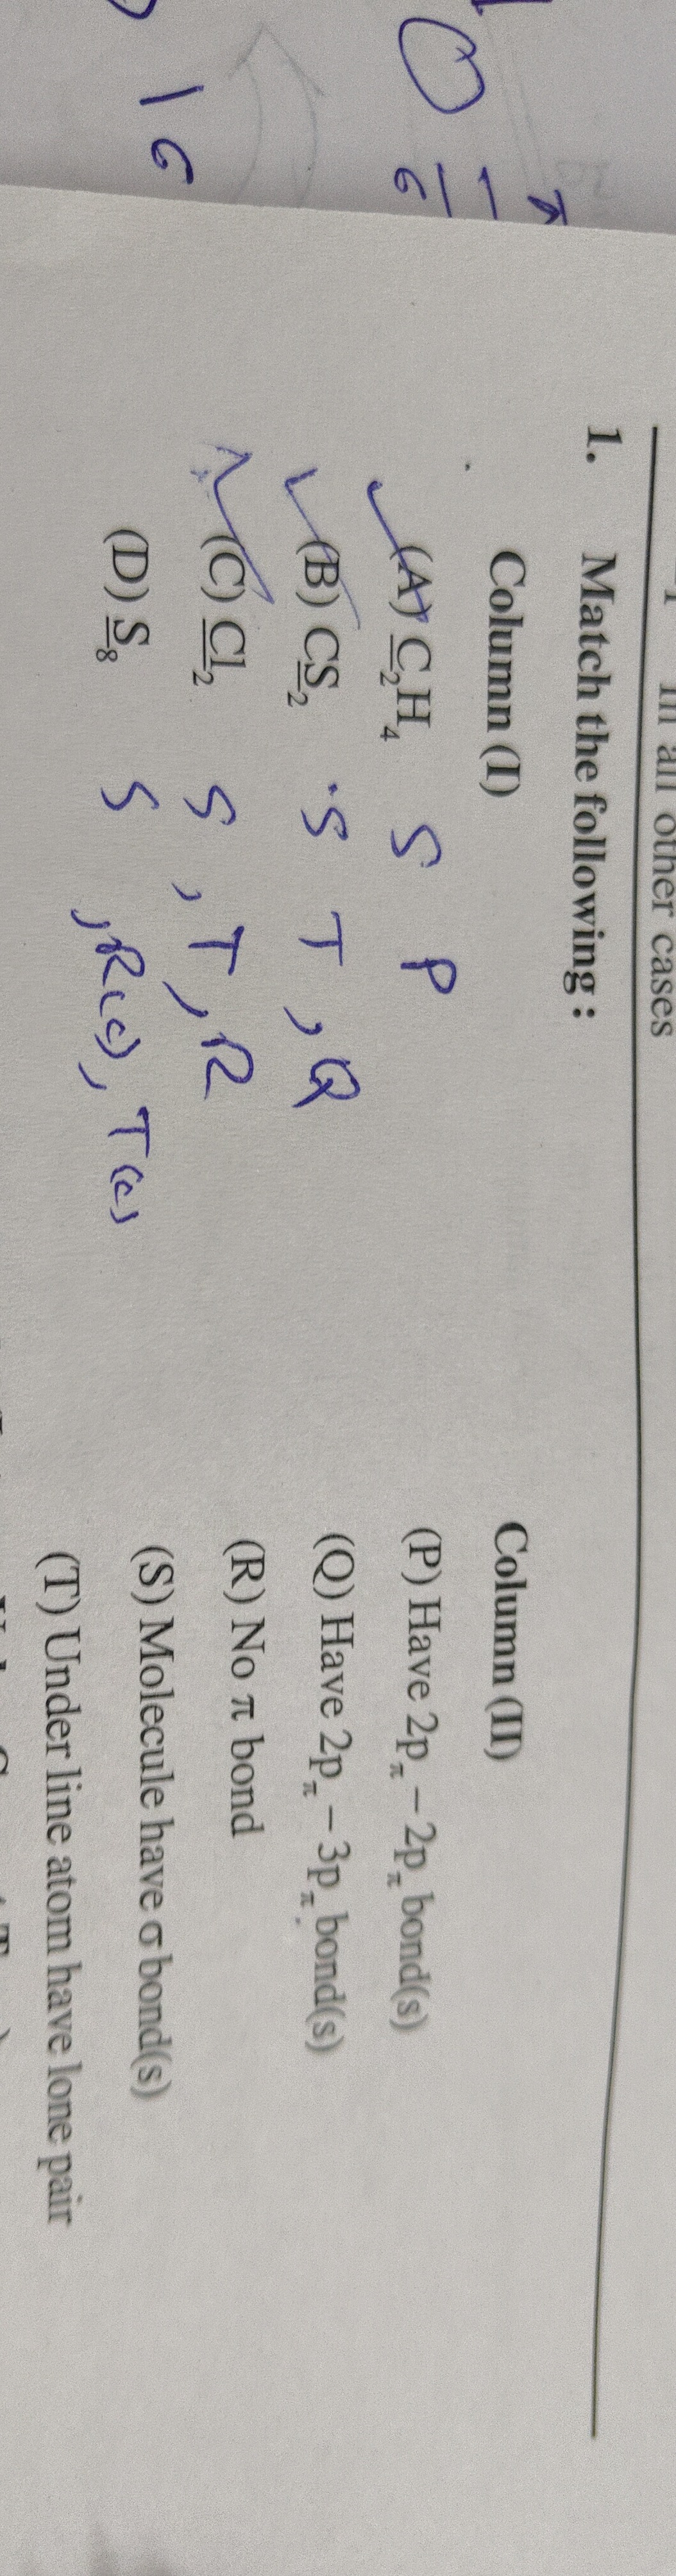 in all other cases
1. Match the following :
Column (I) Column (II)
(A) C₂H₄ S P (P) Have 2pπ – 2pπ bond(s)
(B) CS₂ S T, Q (Q) Have 2pπ – 3pπ bond(s)
(C) Cl₂ S, T, R (R) No π bond
(D) S₈ S, R(c), T(c) (S) Molecule have σ bond(s)
(T) Under line atom have lone pair